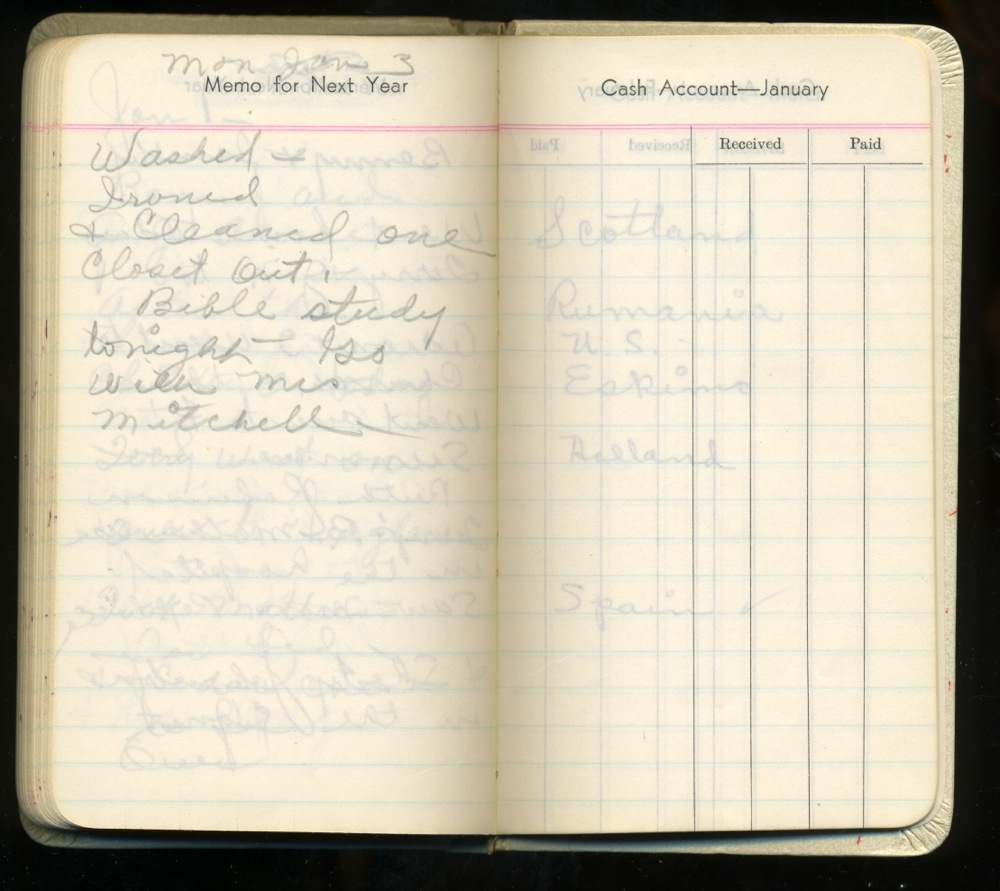 Mon Jan 3
Memo for Next Year
Washed +
Ironed
& Cleaned one
Closet out.
Bible study
tonight - Go
with Mrs
Mitchell.
Cash Account—January
Received Paid
Scotland
Rumania
U.S.
Eskimo
Holland
Spain ✓